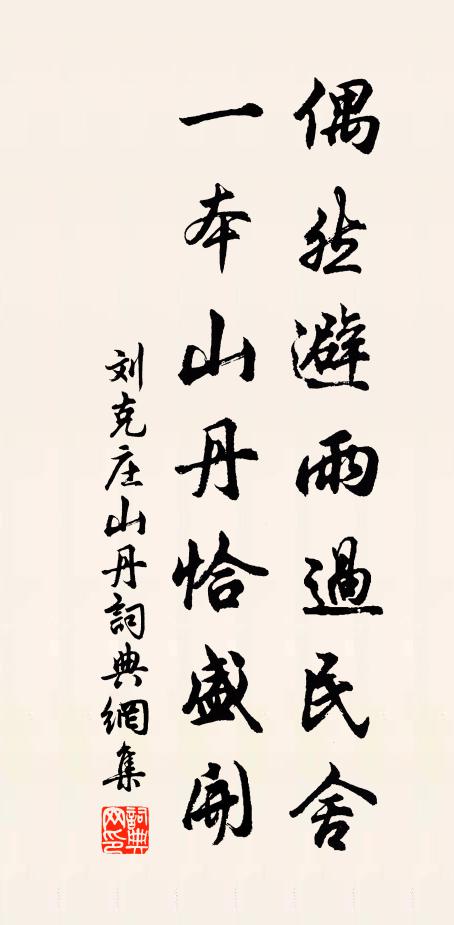 偶然避雨過民舍
一本山丹恰盛開
刘克庄山丹詞典網集
詞典網印